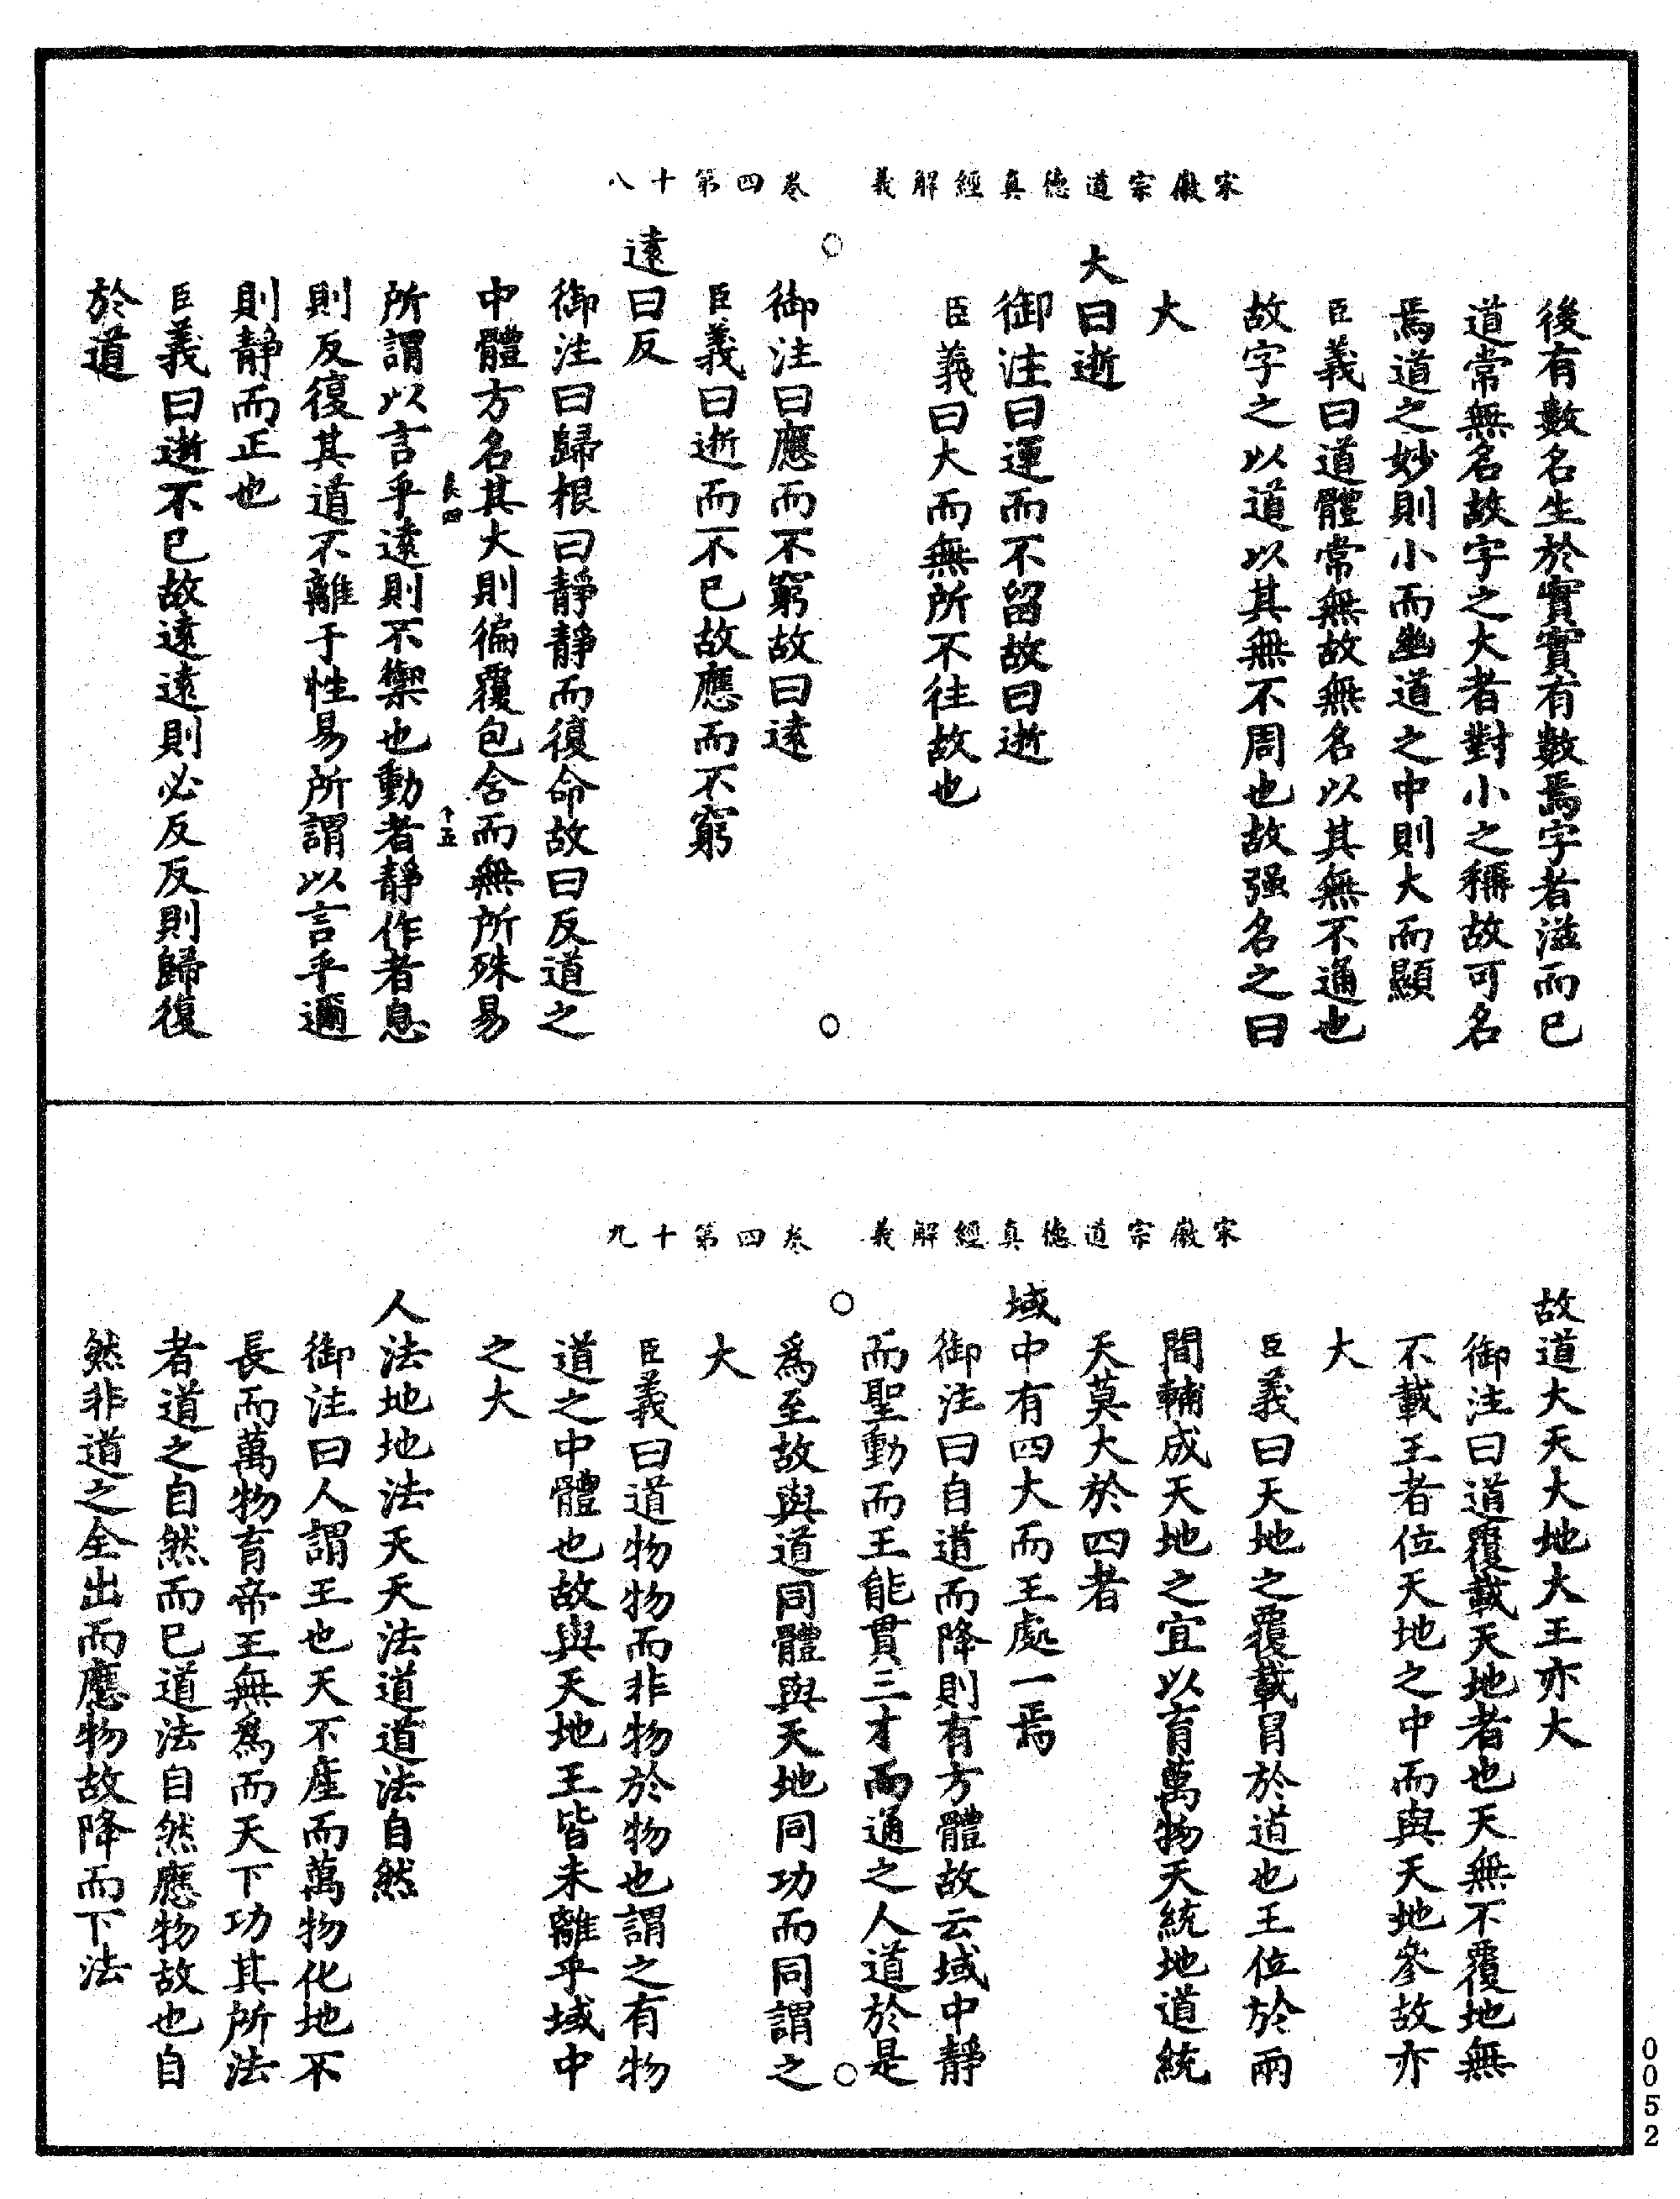 宋徽宗道德真經解義　卷四第十八
後有數名生於實實有數焉字者滋而已
道常無名故字之大者對小之稱故可名
焉道之妙則小而幽道之中則大而顯
臣義曰道體常無故無名以其無不通也
故字之以道以其無不周也故强名之曰
大
大曰逝
御注曰運而不留故曰逝
臣義曰大而無所不往故也
御注曰應而不窮故曰遠
臣義曰逝而不已故應而不窮
遠曰反
御注曰歸根曰靜靜而復命故曰反道之
中體方名其大則徧覆包含而無所殊易
長四　十五
所謂以言乎遠則不禦也動者靜作者息
則反復其道不離于性易所謂以言乎邇
則靜而正也
臣義曰逝不已故遠遠則必反反則歸復
於道
宋徽宗道德真經解義　卷四第十九
故道大天大地大王亦大
御注曰道覆載天地者也天無不覆地無
不載王者位天地之中而與天地參故亦
大
臣義曰天地之覆載冒於道也王位於兩
間輔成天地之宜以育萬物天統地道統
天莫大於四者
域中有四大而王處一焉
御注曰自道而降則有方體故云域中靜
而聖動而王能貫三才而通之人道於是
爲至故與道同體與天地同功而同謂之
大
臣義曰道物物而非物於物也謂之有物
道之中體也故與天地王皆未離乎域中
之大
人法地地法天天法道道法自然
御注曰人謂王也天不產而萬物化地不
長而萬物育帝王無爲而天下功其所法
者道之自然而已道法自然應物故也自
然非道之全出而應物故降而下法
0052